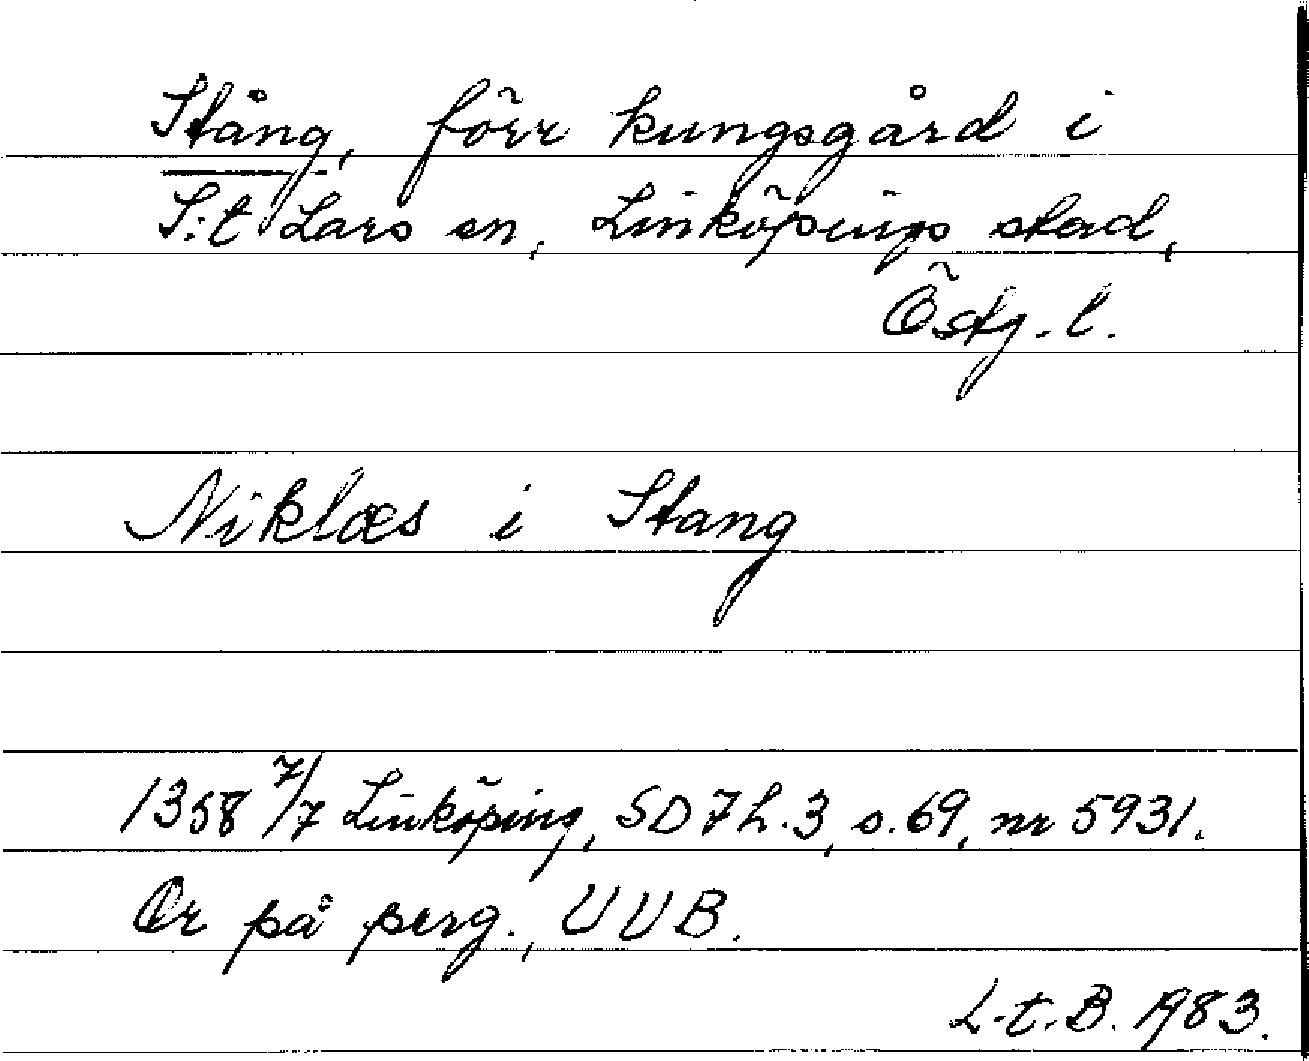 Stång, förr kungsgård i
S:t Lars sn, Linköpings stad,
Östg. l.
Niklæs i Stang
1358 7/7 Linköping, SD 7 h. 3, s. 69, nr 5931.
Or på perg., UUB.
L.t.B. 1983.